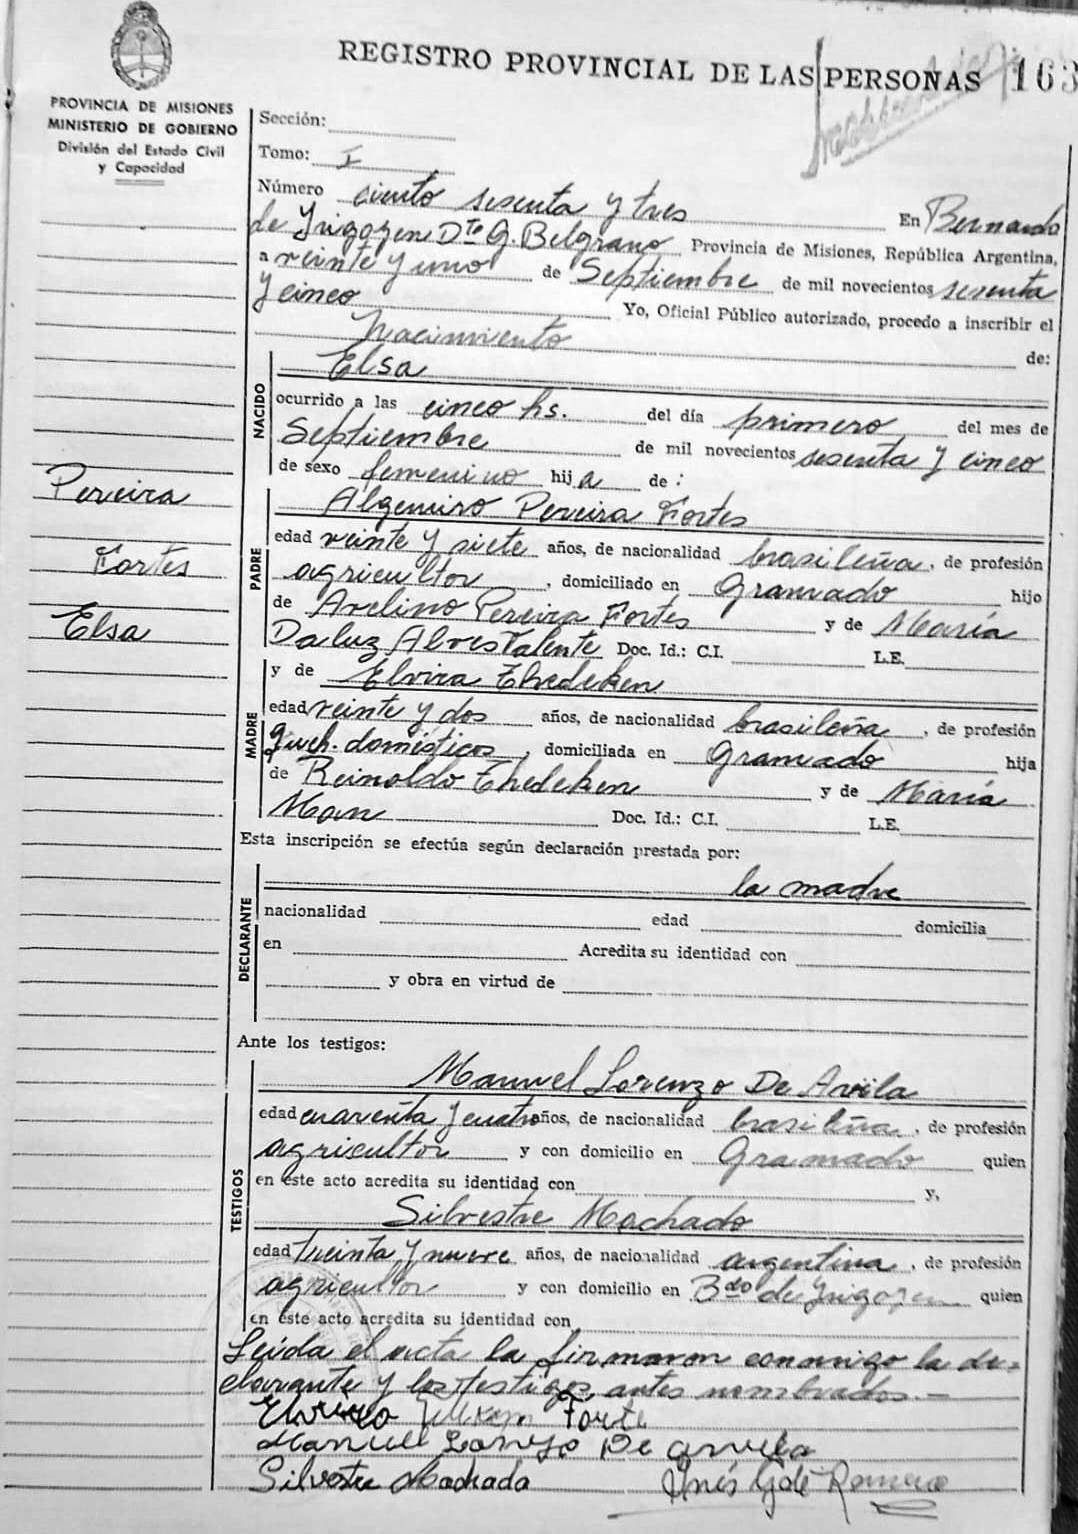 REGISTRO PROVINCIAL DE LAS PERSONAS 163
PROVINCIA DE MISIONES
MINISTERIO DE GOBIERNO
División del Estado Civil
y Capacidad
Sección:
Tomo: I
Número ciento sesenta y tres En Bernardo
de Yrigoyen Dto G. Belgrano Provincia de Misiones, República Argentina,
a veinte y uno de Septiembre de mil novecientos sesenta
y cinco Yo, Oficial Público autorizado, procedo a inscribir el
Nacimiento de:
NACIDO
Elsa
ocurrido a las cinco hs. del día primero del mes de
Septiembre de mil novecientos sesenta y cinco
de sexo femenino hija de:
Pereira
Fortes
Elsa
PADRE
Algemiro Pereira Fortes
edad veinte y siete años, de nacionalidad brasileña, de profesión
agricultor, domiciliado en Gramado hijo
de Avelino Pereira Fortes y de María
Daluz Alves Valente Doc. Id.: C.I. L.E.
MADRE
y de Elvira Thedeken
edad veinte y dos años, de nacionalidad brasileña, de profesión
queh. domésticos, domiciliada en Gramado hija
de Reinoldo Thedeken y de María
Man Doc. Id.: C.I. L.E.
Esta inscripción se efectúa según declaración prestada por:
DECLARANTE
la madre
nacionalidad edad domicilia
en Acredita su identidad con
y obra en virtud de
Ante los testigos:
TESTIGOS
Manuel Lorenzo De Avila
edad cuarenta y cuatro años, de nacionalidad brasileña, de profesión
agricultor y con domicilio en Gramado quien
en este acto acredita su identidad con y,
Silvestre Machado
edad treinta y nueve años, de nacionalidad argentina, de profesión
agricultor y con domicilio en Bdo de Yrigoyen quien
en este acto acredita su identidad con
Leída el acta la firmaron conmigo la de=
clarante y los testigos antes nombrados.—
Forte
De
Silvestre Machado
Inés Romero